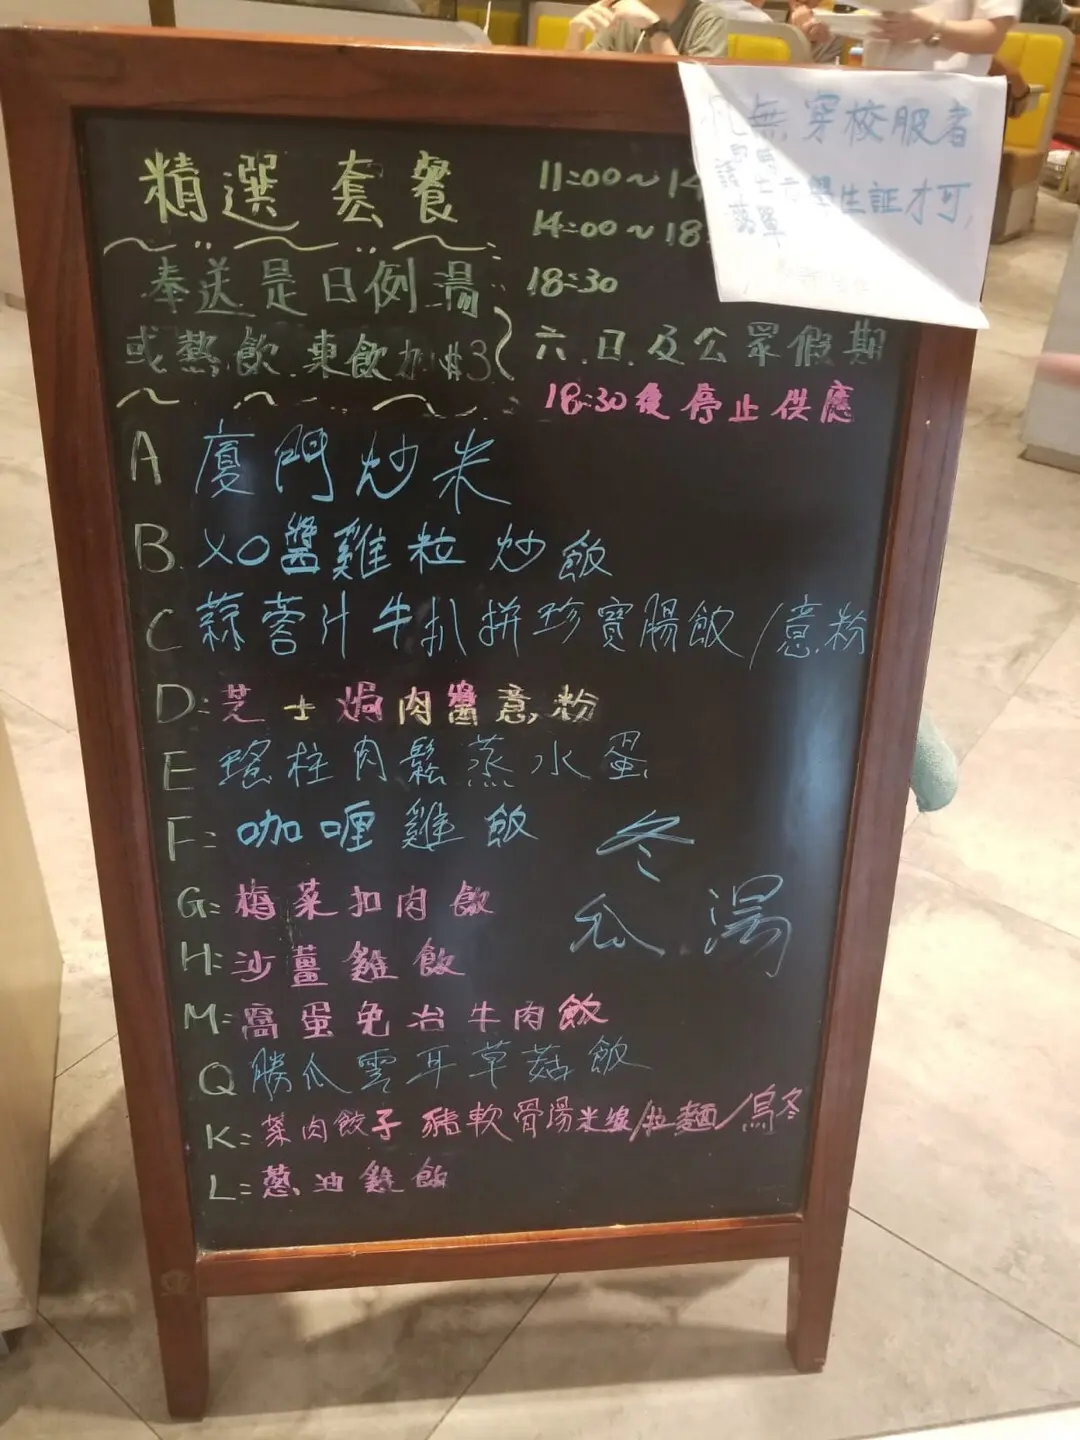 無穿校服者
學生証才可
落單
精選套餐
11:00~14
14:00~18
奉送是日例湯
18:30
或熱飲.凍飲加$3
六.日.及公眾假期
18:30後停止供應
A 廈門炒米
B. XO醬雞粒炒飯
C 蒜蓉汁牛扒拼珍寶腸飯/意粉
D:芝士焗肉醬意粉
E 瑤柱肉鬆蒸水蛋
F: 咖喱雞飯
G: 梅菜扣肉飯
H:沙薑雞飯
M:窩蛋免治牛肉飯
Q 勝瓜雲耳草菇飯
K: 菜肉餃子豬軟骨湯米線/拉麵/烏冬
L: 蔥油雞飯
冬
瓜湯